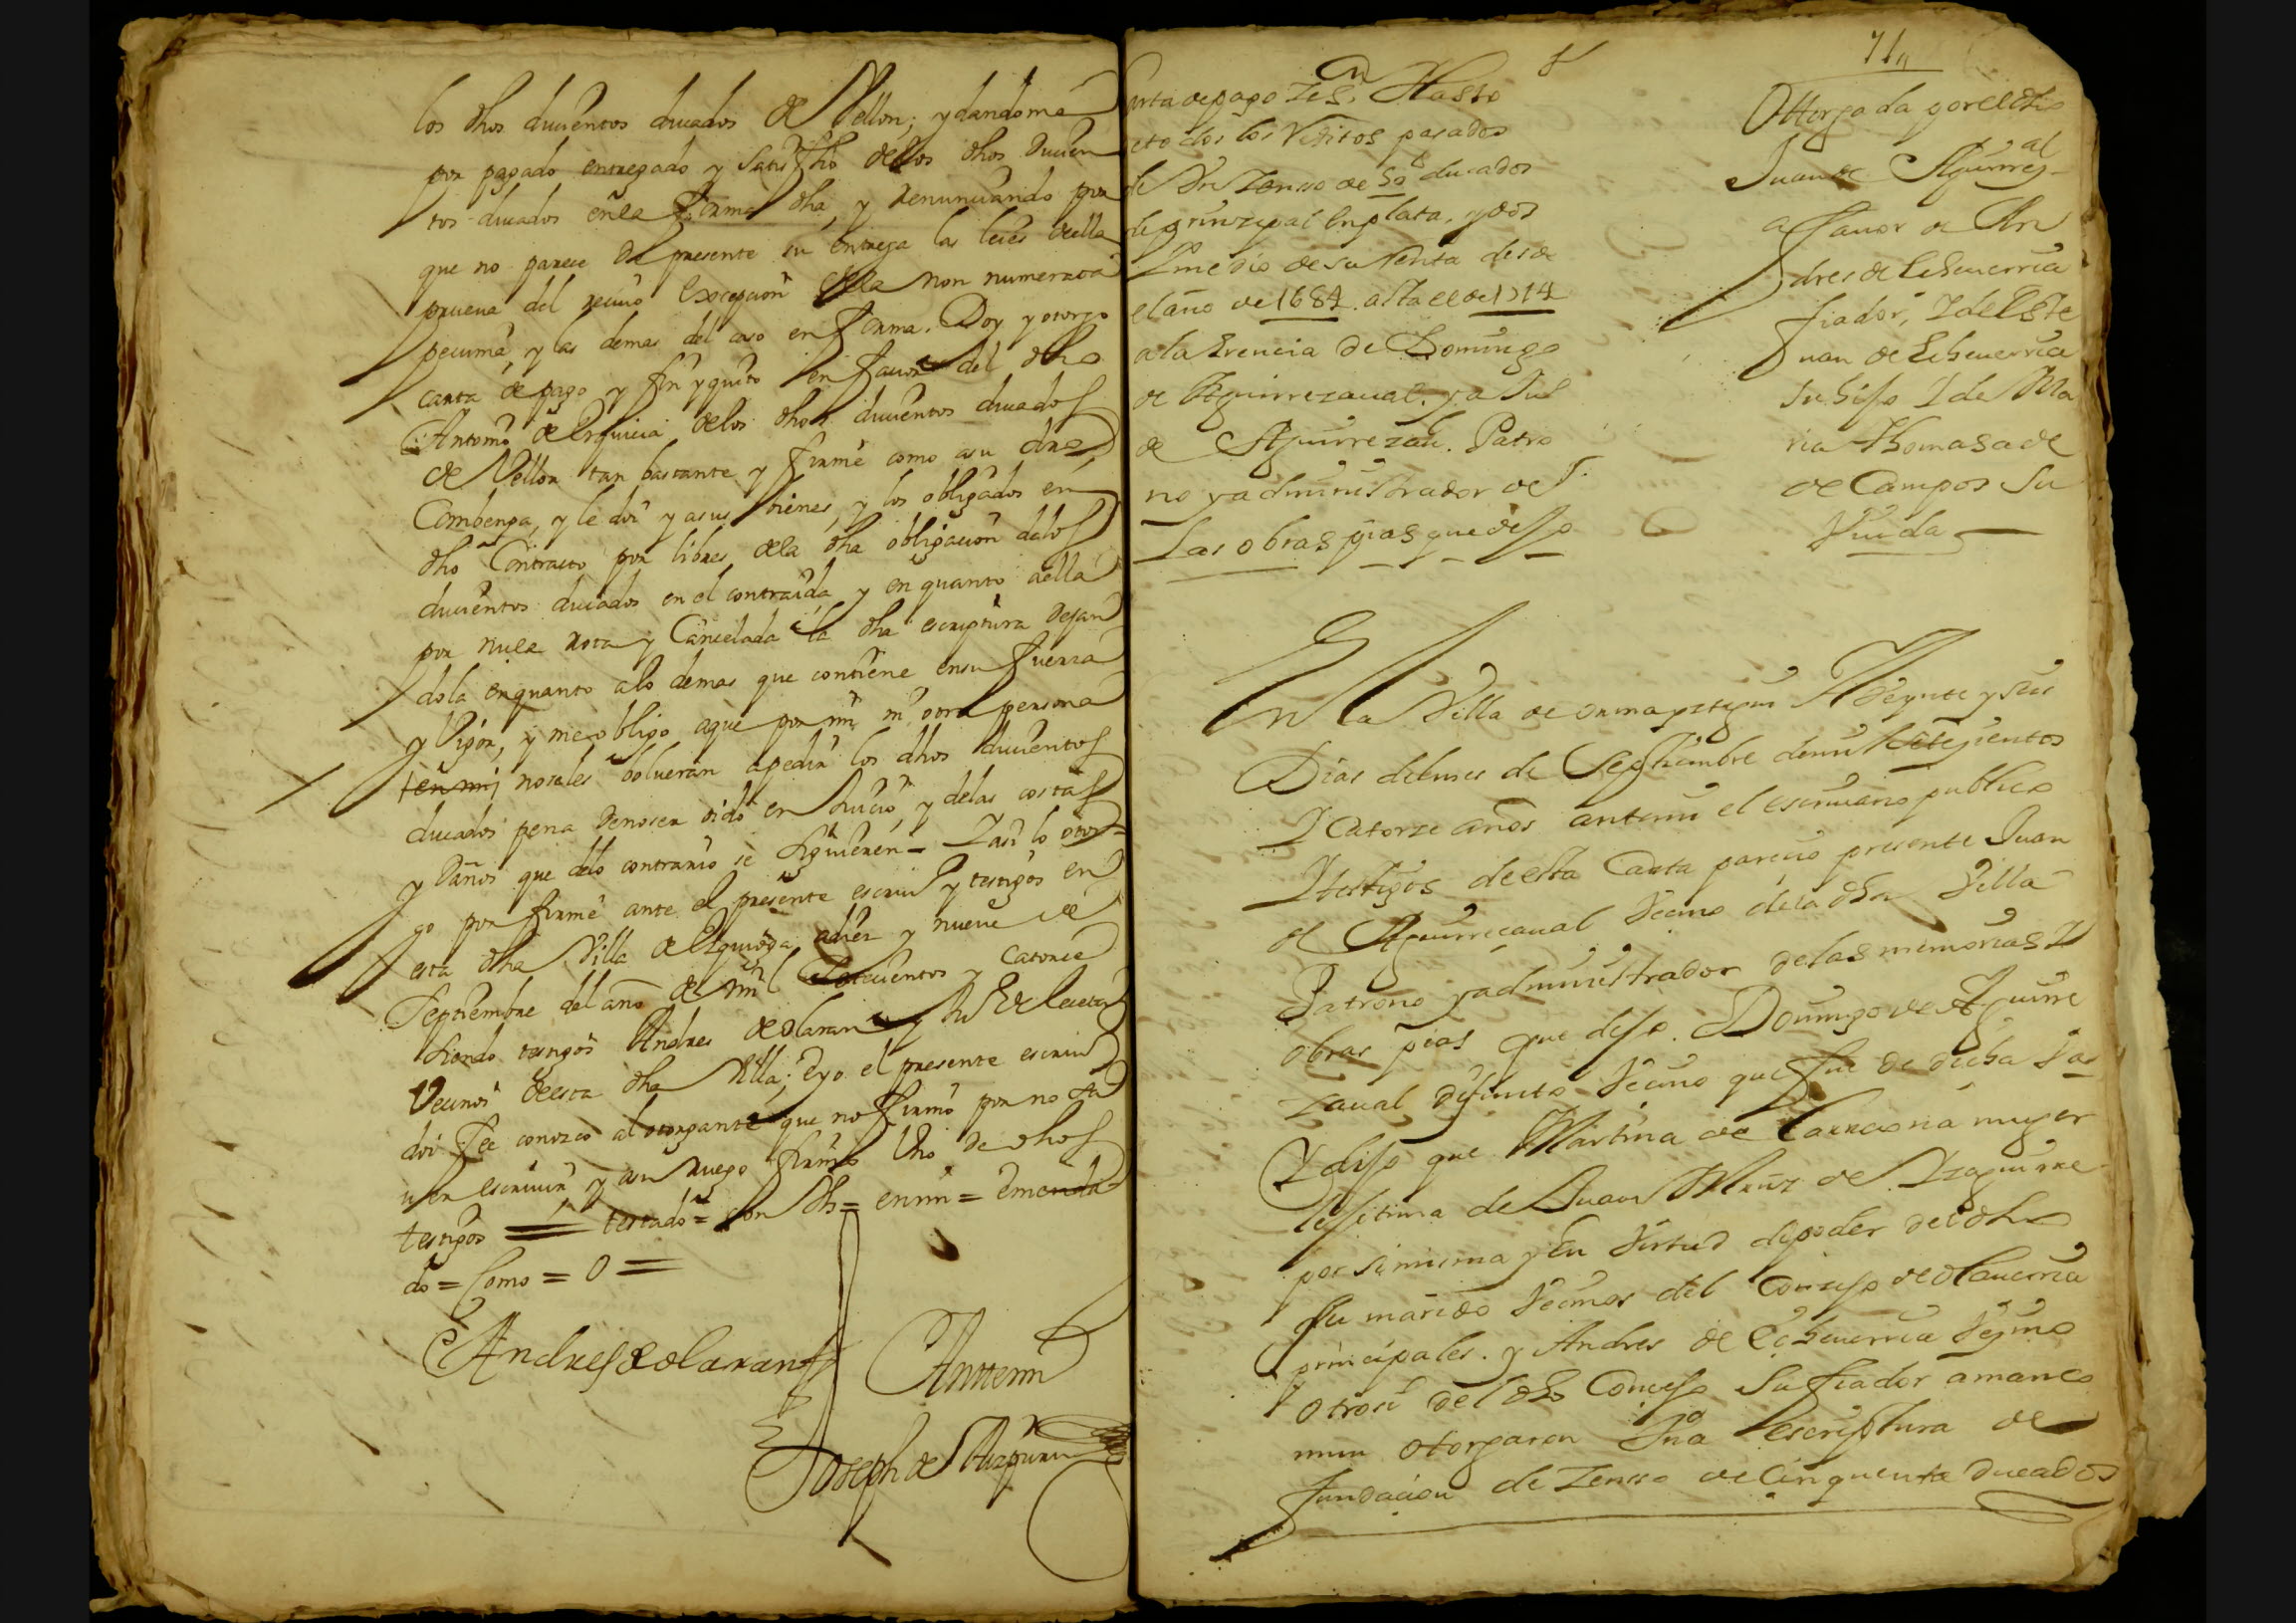 los dhos ducientos ducados de Vellon; y dandome
por pagado entregado y satisfho de los dhos ducien
tos ducados en la forma dha, y renunciando por
que no parece de presente su entrega las leies de la
prueua del reciuo excepcion de la non numerata
pecunia, y las demas del caso en forma. Doy y otorgo
carta de pago y fin y quito en fauor del dho
Antonio de los dhos ducientos ducados
de Vellon tan bastante y firme como a su drò
combenga, y le doi y a sus bienes, y los obligados en
dho Contracto por libres de la dha obligacion de los
ducientos ducados en el contraida y en quanto a ella
por nula rota y Cancelada la dha escriptura dejan
dola en quanto a lo demas que contiene en su fuerza
y Vigor, y me obligo a que por mi ni otra persona
ten mi no se les bolueran a pedir los dhos ducientos
ducados pena de no ser oido en Juicio, y de las costas
y Daños que de lo contrario se siguieren = I asi lo otor=
go por firme ante el presente escriuo y testigos en
esta dha Villa de a diez y nueue de
Septiembre del año de mil setecientos y catorce
siendo testigos Andres de olaran y
Vecinos de esta dha Villa; Eyo el presente escriuo
doi Fee conozco al otorgante que no firmo por no sa
uer escriuir y a su ruego firmo Uno de dhos
testigos = testado = con dh = en mi = emenda
do = Como = O =
Andres de olaran
Ante mi
Joseph de Aizpuru
71
Carta de pago Hasto
de todos los Reditos pasados
de Un Zenso de 50 ducados
de prinzipal en plata, y dos
I medio de su Renta desde
el año de 1684 asta el de 1714
a la Erencia de Domingo
de Aguirrezaual. y a Jua
de Aguirrezaul. Patro
no y administrador de
Las obras pias que dejo
Ottorgada por el dho
Juan de Aguirrez al
a fauor de An
dres de Echeuerria
fiador, I del Este
Juan de Echeuerria
su hijo I de Ma
ria Thomasa de
de Campos su
Viuda
En la Villa de ormayztegui A Veynte y seis
Dias del mes de Septiembre de mil setezientos
I Catorze años ante mi el escriuano publico
I testigos de esta Carta parecio presente Juan
de Aguirrezaual Vecino de la dha Villa
Patrono y administrador de las memorias I
obras pias que dejo. Domingo de Aguirre
zaual difunto Vecino que fue de dicha Va
I dijo que Martina de Larreona muger
legitima de Juan Mrnz de Izaguirre
por si misma y En Virtud de poder del dho
su marido Vecinos del Conzejo de olauerria
principales. y Andres de Echeuerria Vezino
otrosi del dho Concejo su fiador a manco
mun otorgaron Vna escriptura de
fundacion de Zenso de Cinquenta Ducados